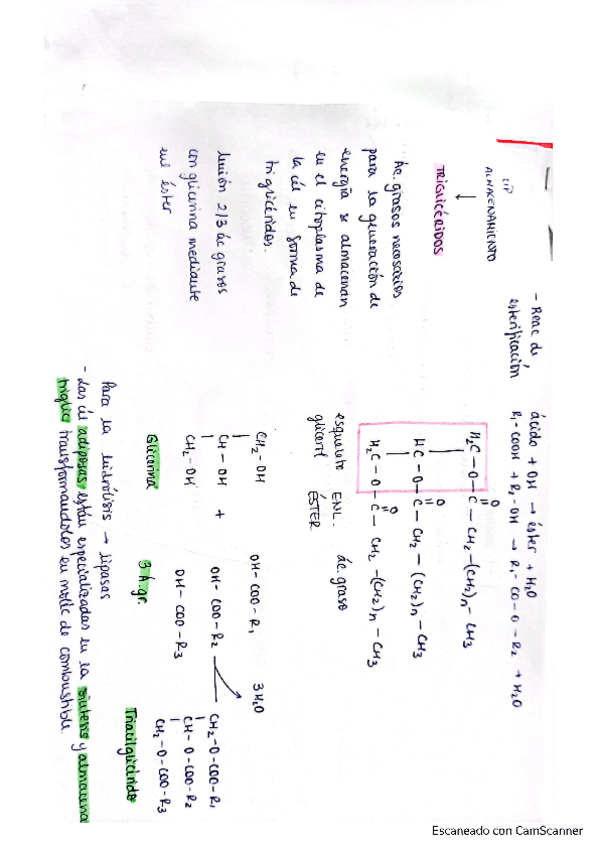 LIP
ALMACENAMIENTO
↓
TRIGLICÉRIDOS
Ác. grasos necesarios
para la generación de
energía se almacenan
en el citoplasma de
la cél en forma de
triglicéridos.
Unión 2/3 ác grasos
con glicerina mediante
enl éster
- Reac de
esterificación
ácido + OH → éster + H2O
R1-COOH + R2-OH → R1-CO-O-R2 + H2O
H2C-O-C-CH2-(CH2)n-CH3
O
HC-O-C-CH2-(CH2)n-CH3
O
H2C-O-C-CH2-(CH2)n-CH3
O
esqueleto ENL. ác. graso
glicerol ÉSTER
CH2-OH OH-COO-R1 3H2O CH2-O-COO-R1
CH-OH + OH-COO-R2 CH-O-COO-R2
CH2-OH OH-COO-R3 CH2-O-COO-R3
Glicerina 3 Á.gr. Triacilglicérido
Para la hidrólisis → lipasas
- Las cél adiposas están especializadas en la síntesis y almacena
triglic transformandolos en moléc de combustible.
Escaneado con CamScanner